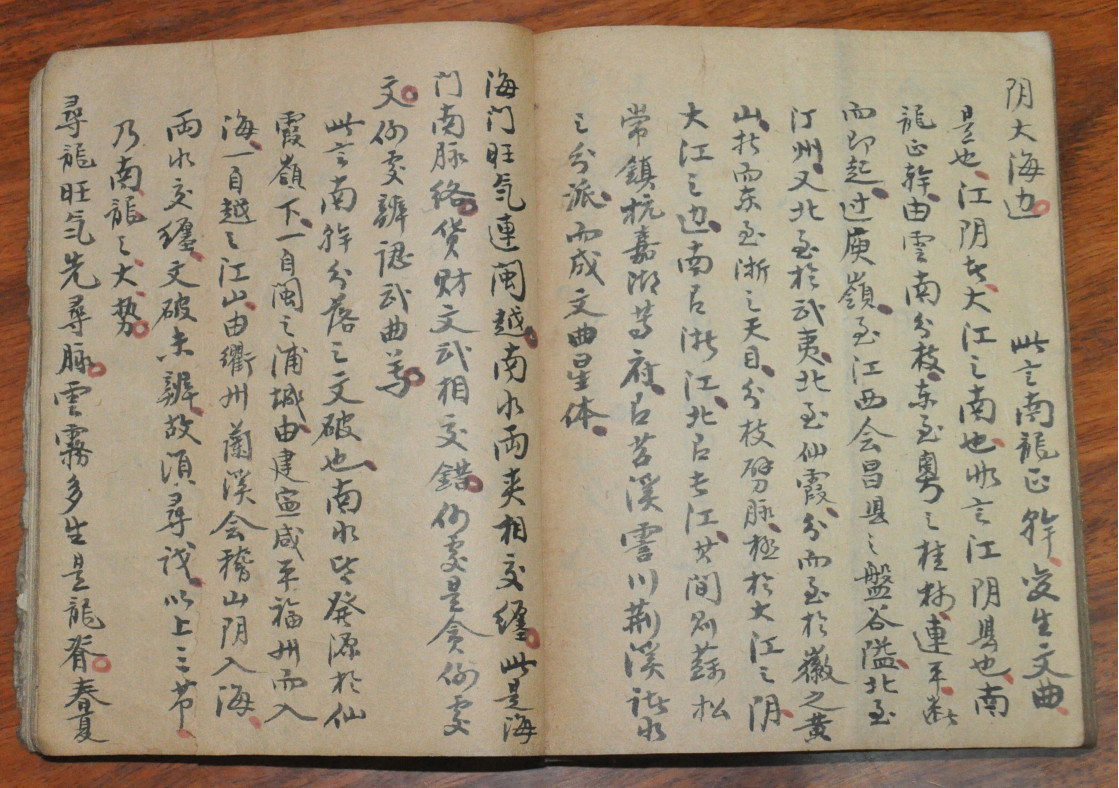 阴大海边。 此言南龍正幹、変生文曲、
是也、江阴在大江之南也、此言江阴县也、南
龍正幹、由雲南分枝、东至粤之桂林、連平断
而即起、过庾嶺、至江西会昌县之盤谷隘、北至
汀州、又北至於武夷、北至仙霞、分而至於徽之黄
山、折而东至浙之天目、分枝劈脉、極於大江之阴、
大江之边、南有浙江、北有长江、其间则蘇松
常鎮杭嘉湖等府、有苕溪霅川荆溪諸水
之分派、而成文曲星体、
海门旺气連闽越。南水兩夹相交纏。此是海
门南脉络。货财文武相交錯。何處是貪何處
文。何處辨認武曲尊。
此言南幹分落之文破也、南水皆發源於仙
霞嶺下、一自闽之浦城、由建寧咸平福州而入
海、一自越之江山、由衢州蘭溪会稽山阴入海、
兩水交纏、文破未辨、故須尋我、以上三节、
乃南龍之大势。
尋龍旺气先尋脉。雲霧多生是龍脊。春夏